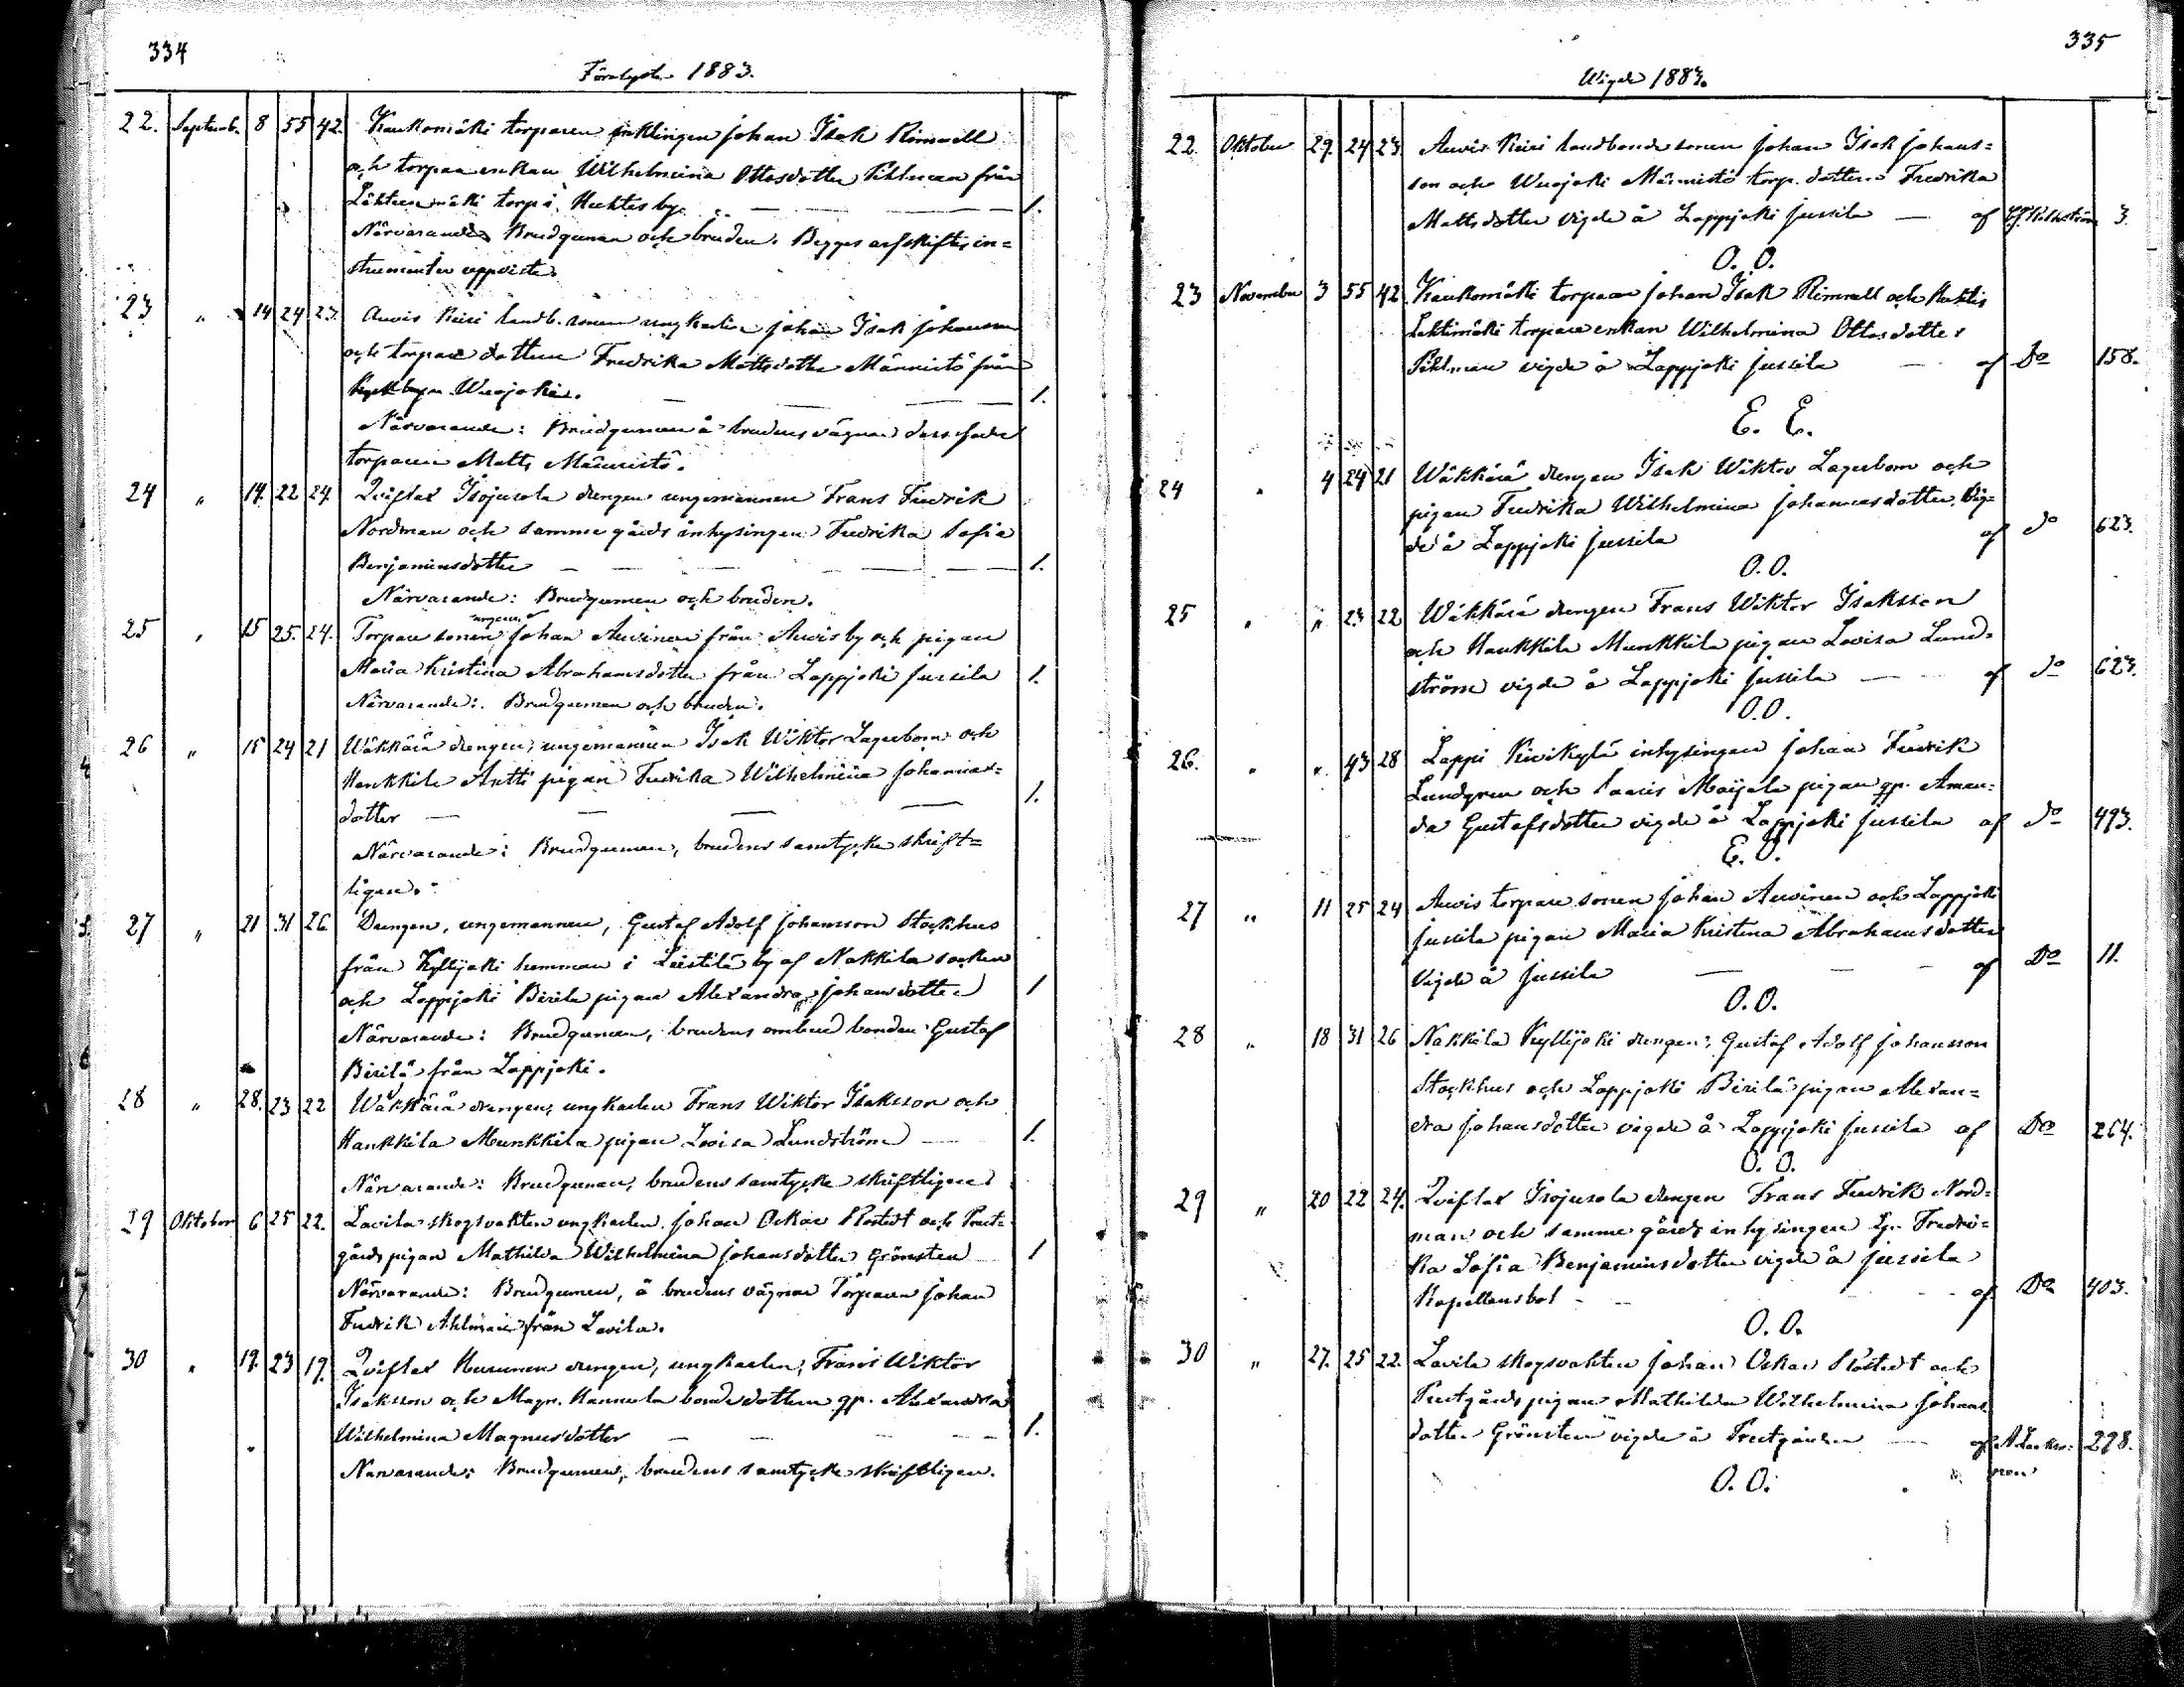 334
Förelyste 1883.
22. Septemb. 8 55 42. Kaukomäki torparen enklingen Johan Isak Rimnell
och torpareenkan Wilhelmina Ottosdotter Pihlman från
Lähteenmäki torp i Huhtis by. 1.
Närvarande Brudgumen och bruden. Begges arfskiftesin=
strumenter uppviste.
23 " 14 24 23. Auvis Keisi landb. sonen ungkarlen Johan Isak Johansson
och torpare dottern Fredrika Mattsdotter Männistö från
Wuojoki. 1.
Närvarande: Brudgumen å brudens vägnar dess fader
torparen Matts Männistö.
24 " 14. 22 24. Qviflax Isojusola drengen ungemannen Frans Fredrik
Nordman och samme gårds inhysingen Fredrika Sofia
Benjaminsdotter 1.
Närvarande: Brudgumen och bruden.
25 " 15 25. 24. Torpare sonen Johan Auvinen från Auvis by och pigan
Maria Kristina Abrahamsdotter från Lappjoki Jussila 1.
Närvarande: Brudgumen och bruden.
26 " 15 24 21 Wäkkärä drengen, ungemannen Isak Wiktor Lagerbom och
Hankkila Antti pigan Fredrika Wilhelmina Johannes=
dotter 1.
Närvarande: Brudgumen, brudens samtycke skrift=
ligen.
27 " 21 31 26 Drengen, ungemannen, Gustaf Adolf Johansson Stockhus
från Kyllijoki hemman i Leistilä by af Nakkila socken
och Lappjoki Birilä pigan Alexandra Johansdotter 1
Närvarande: Brudgumen, brudens ombud bonden Gustaf
Birilä från Lappjoki.
28 " 28. 23 22 Wäkkärä drengen, ungkarlen Frans Wiktor Isaksson och
Hankkila Munkkila pigan Lovisa Lundström 1.
Närvarande: Brudgumen, brudens samtycke skriftligen.
29 Oktober 6 25 22. Lavila skogsvakten ungkarlen Johan Oskar Rostedt och Prest=
gårds pigan Mathilda Wilhelmina Johansdotter Grönsten 1
Närvarande: Brudgumen, å brudens vägnar Torparen Johan
Fredrik Ahlman från Lavila.
30 " 19. 23 19. Qviflax drengen, ungkarlen, Frans Wiktor
Isaksson och Hannula bonde dottern qp. Alexandra
Wilhelmina Magnusdotter 1.
Närvarande: Brudgumen, brudens samtycke skriftligen.
335
Wigde 1883.
22. Oktober 29. 24 23. Auvis Keisi landbonde sonen Johan Isak Johans=
son och Wuojoki Männistö torp. dottern Fredrika
Mattsdotter vigde å Lappjoki Jussila af 3.
O. O.
23 November 3 55 42 Kaukomäki torparen Johan Isak Rimnell och Huhtis
Lehtimäki torpareenkan Wilhelmina Ottosdotter
Pihlman vigde å Lappjoki Jussila af Do 158.
E. E.
24 " 4 24 21 Wäkkärä drengen Isak Wiktor Lagerbom och
pigan Fredrika Wilhelmina Johannesdotter. Vig=
de å Lappjoki Jussila af do 623.
O. O.
25 " " 23 22 Wäkkärä drengen Frans Wiktor Isaksson
och Hankkila Munkkila pigan Lovisa Lund=
ström vigde å Lappjoki Jussila af do 623.
O. O.
26. " " 43 28 Lappi Kivikylä inhysingen Johan Fredrik
Lundgren och Saaris Maijala pigan qp. Aman=
da Gustafsdotter vigde å Lappjoki Jussila af do 493.
E. O.
27 " 11 25 24 Auvis torpare sonen Johan Auvinen och Lappjoki
Jussila pigan Maria Kristina Abrahamsdotter
Vigde å Jussila af Do 11.
O. O.
28 " 18 31 26 Nakkila Kyllijoki drengen, Gustaf Adolf Johansson
Stockhus och Lappjoki Birilä pigan Alexan=
dra Johansdotter vigde å Lappjoki Jussila af Do 264.
O. O.
29 " 20 22 24. Qviflax Isojusola drengen Frans Fredrik Nord=
man och samme gårds inhysingen qp. Fredri=
ka Sofia Benjaminsdotter vigde å Jussila
Kapellansbol af Do 403.
O. O.
30 " 27. 25 22. Lavila skogsvakten Johan Oskar Rostedt och
Prestgårds pigan Mathilda Wilhelmina Johans
dotter Grönsten vigde å Prestgården af 298.
O. O.